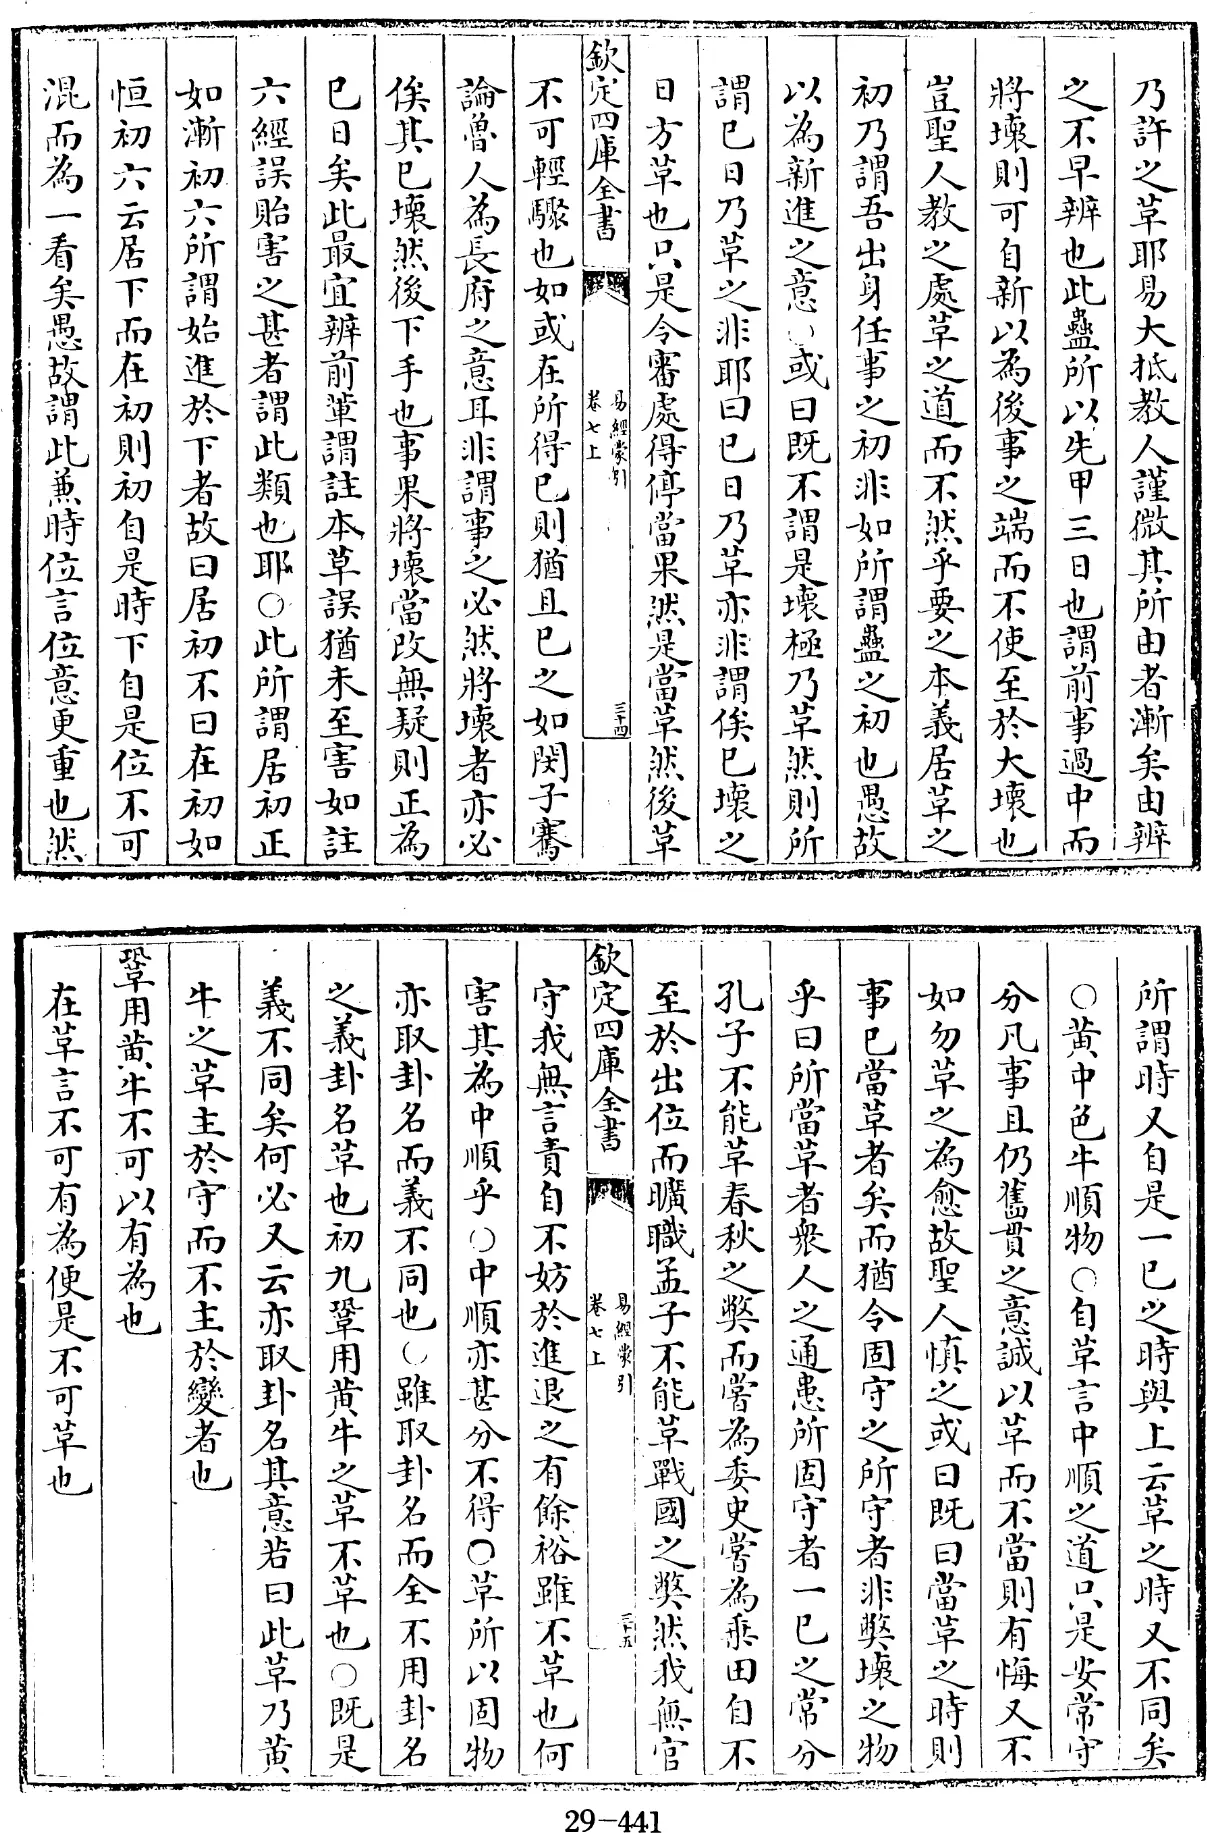 乃許之革耶易大抵教人謹微其所由者漸矣由辨
之不早辨也此蠱所以先甲三日也謂前事過中而
將壞則可自新以為後事之端而不使至於大壞也
豈聖人教之處革之道而不然乎要之本義居革之
初乃謂吾出身任事之初非如所謂蠱之初也愚故
以為新進之意○或曰既不謂是壞極乃革然則所
謂巳日乃革之非耶曰巳日乃革亦非謂俟巳壞之
日方革也只是令審處得停當果然是當革然後革
欽定四庫全書
易經蒙引
卷七上
三十四
不可輕驟也如或在所得巳則猶且巳之如閔子騫
論魯人為長府之意耳非謂事之必然將壞者亦必
俟其巳壞然後下手也事果將壞當改無疑則正為
巳日矣此最宜辨前輩謂註本草誤猶未至害如註
六經誤貽害之甚者謂此類也耶○此所謂居初正
如漸初六所謂始進於下者故曰居初不曰在初如
恒初六云居下而在初則初自是時下自是位不可
混而為一看矣愚故謂此兼時位言位意更重也然
所謂時又自是一巳之時與上云革之時又不同矣
○黃中色牛順物○自革言中順之道只是安常守
分凡事且仍舊貫之意誠以革而不當則有悔又不
如勿革之為愈故聖人慎之或曰既曰當革之時則
事巳當革者矣而猶令固守之所守者非弊壞之物
乎曰所當革者衆人之通患所固守者一巳之常分
孔子不能革春秋之弊而嘗為委吏嘗為乘田自不
至於出位而曠職孟子不能革戰國之弊然我無官
欽定四庫全書
易經蒙引
卷七上
三十五
守我無言責自不妨於進退之有餘裕雖不革也何
害其為中順乎○中順亦甚分不得○革所以固物
亦取卦名而義不同也○雖取卦名而全不用卦名
之義卦名革也初九鞏用黃牛之革不革也○既是
義不同矣何必又云亦取卦名其意若曰此革乃黃
牛之革主於守而不主於變者也
鞏用黃牛不可以有為也
在革言不可有為便是不可革也
29-441